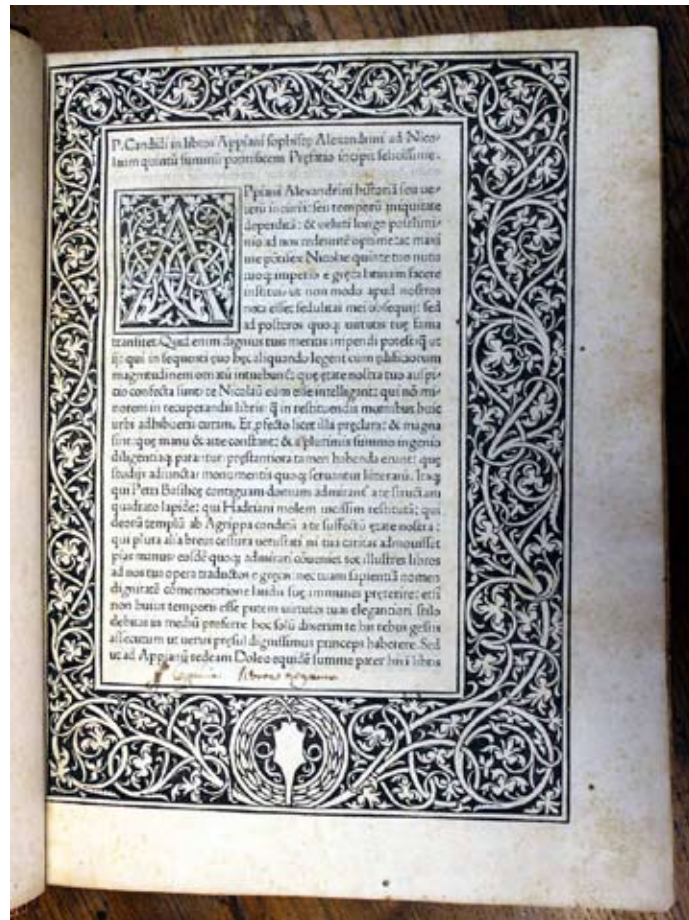 P. Candidi in libros Appiani sophistę Alexandrini ad Nico-
laum quintū summū pontificem Pręfatio incipit felicissime.
APpiani Alexandrini historiā seu ue-
terū incuria: seu temporū iniquitate
deperditā: & ueluti longo postlimi-
nio ad nos redeuntē optime: ac maxi
me pōtifex Nicolae quinte tuo nutu
tuoq; imperio e gręca latinam facere
institui: ut non modo apud nostros
nota esset sedulitas mei obsequij: sed
ad posteros quoq; uirtutis tuę fama
transiret. Quid enim dignius tuis meritis impendi potest: q̄ ut
ij: qui in sequenti ęuo hęc aliquando legent cum ędificiorum
magnitudinem ornatū intuebunt̄: quę ętate nostra tuo auspi-
cio confecta sunt: te Nicolaū eum esse intellegant: qui nō mi-
norem in recuperandis libris: q̄ in restituendis moenibus huic
urbi adhibueris curam. Et ꝓfecto licet illa pręclara: & magna
sint: quę manu & arte constant: & a plurimis summo ingenio
diligentiaq; parantur pręstantiora tamen habenda erunt: quę
studijs adiuncta: monumentis quoq; seruantur litterarū. Itaq;
qui Petri Basilicę contiguam domum admirant̄ a te structam
quadrato lapide: qui Hadriani molem nuissim restitutā: qui
deorū templū ab Agrippa conditū a te suffectū ętate nostra:
qui plura alia breui cessura uetustati ni tua caritas admouisset
pias manus: eosdē quoq; admirari cōueniet tot illustres libros
ad nos tua opera traductos e gręcis: nec tuam sapientiā nomen
dignitatē cōmemoratione laudis suę immunes pręterire: etsi
non huius temporis esse putem uirtutes tuas elegantiori stilo
debitas in mediū proferre hoc solū dixerim te his rebus gestis
assecutum ut uerus pręsul dignissimus princeps haberere. Sed
ut ad Appianū redeam Doleo equidē summe pater hui<sup></sup> libris